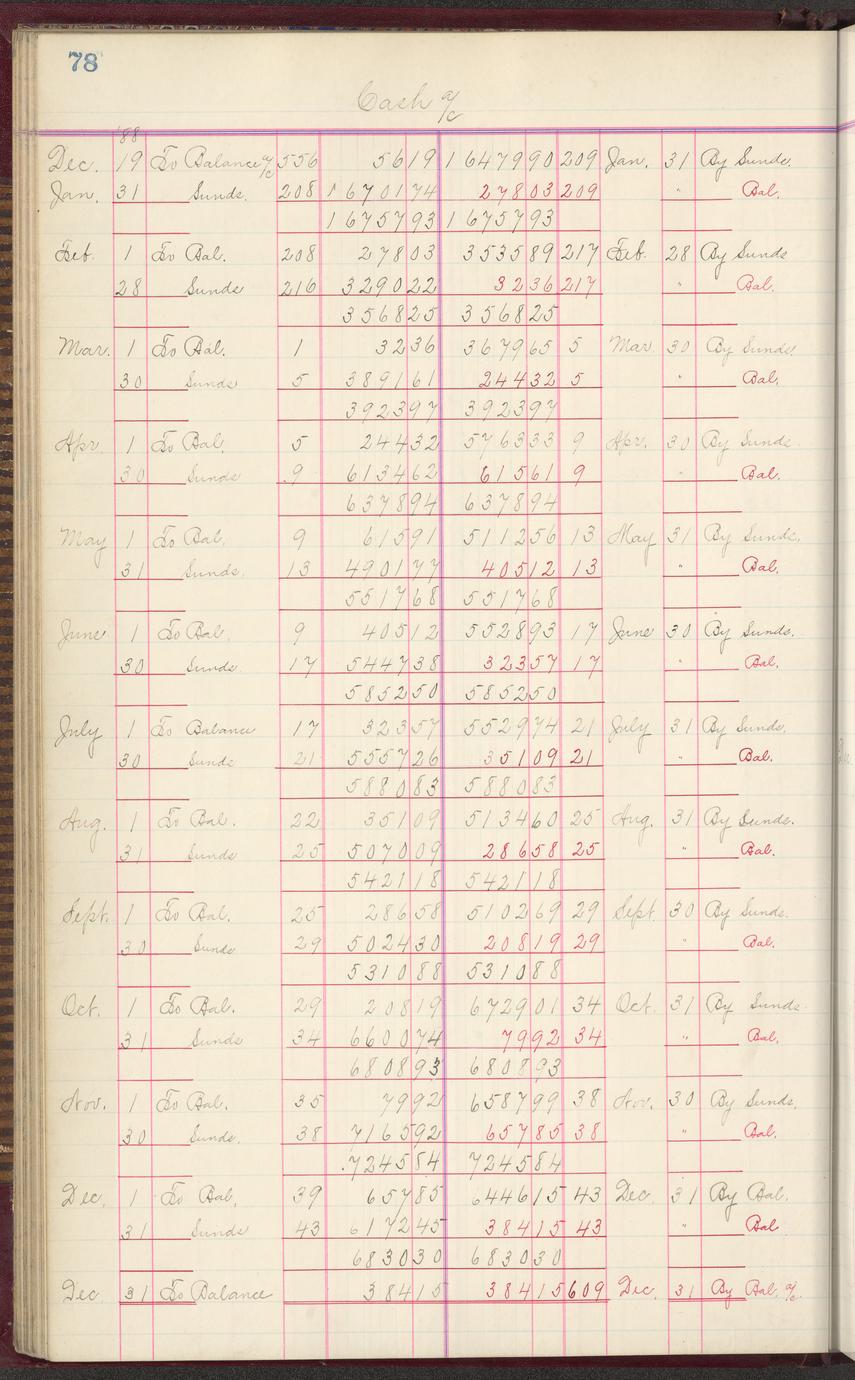 78
Cash a/c
'88
Dec. 19 To Balance a/c 556 5619 1647990 209 Jan. 31 By Sunds.
Jan. 31 Sunds. 208 1670174 27803 209 " Bal.
1675793 1675793
Feb. 1 To Bal. 208 27803 353589 217 Feb. 28 By Sunds
28 Sunds 216 329022 3236 217 " Bal.
356825 356825
Mar. 1 To Bal. 1 3236 367965 5 Mar. 30 By Sunds.
30 Sunds 5 389161 24432 5 " Bal.
392397 392397
Apr. 1 To Bal. 5 24432 576333 9 Apr. 30 By Sunds.
30 Sunds 9 613462 61561 9 " Bal.
637894 637894
May 1 To Bal. 9 61591 511256 13 May 31 By Sunds.
31 Sunds. 13 490177 40512 13 " Bal.
551768 551768
June 1 To Bal. 9 40512 552893 17 June 30 By Sunds.
30 Sunds. 17 544738 32357 17 " Bal.
585250 585250
July 1 To Balance 17 32357 552974 21 July 31 By Sunds.
30 Sunds 21 555726 35109 21 " Bal.
588083 588083
Aug. 1 To Bal. 22 35109 513460 25 Aug. 31 By Sunds.
31 Sunds 25 507009 28658 25 " Bal.
542118 542118
Sept. 1 To Bal. 25 28658 510269 29 Sept. 30 By Sunds.
30 Sunds 29 502430 20819 29 " Bal.
531088 531088
Oct. 1 To Bal. 29 20819 672901 34 Oct. 31 By Sunds.
31 Sunds 34 660074 7992 34 " Bal.
680893 680893
Nov. 1 To Bal. 35 7992 658799 38 Nov. 30 By Sunds.
30 Sunds. 38 716592 65785 38 " Bal.
724584 724584
Dec. 1 To Bal. 39 65785 644615 43 Dec. 31 By Bal.
31 Sunds 43 617245 38415 43 " Bal
683030 683030
Dec. 31 To Balance 38415 38415 609 Dec. 31 By Bal. a/c